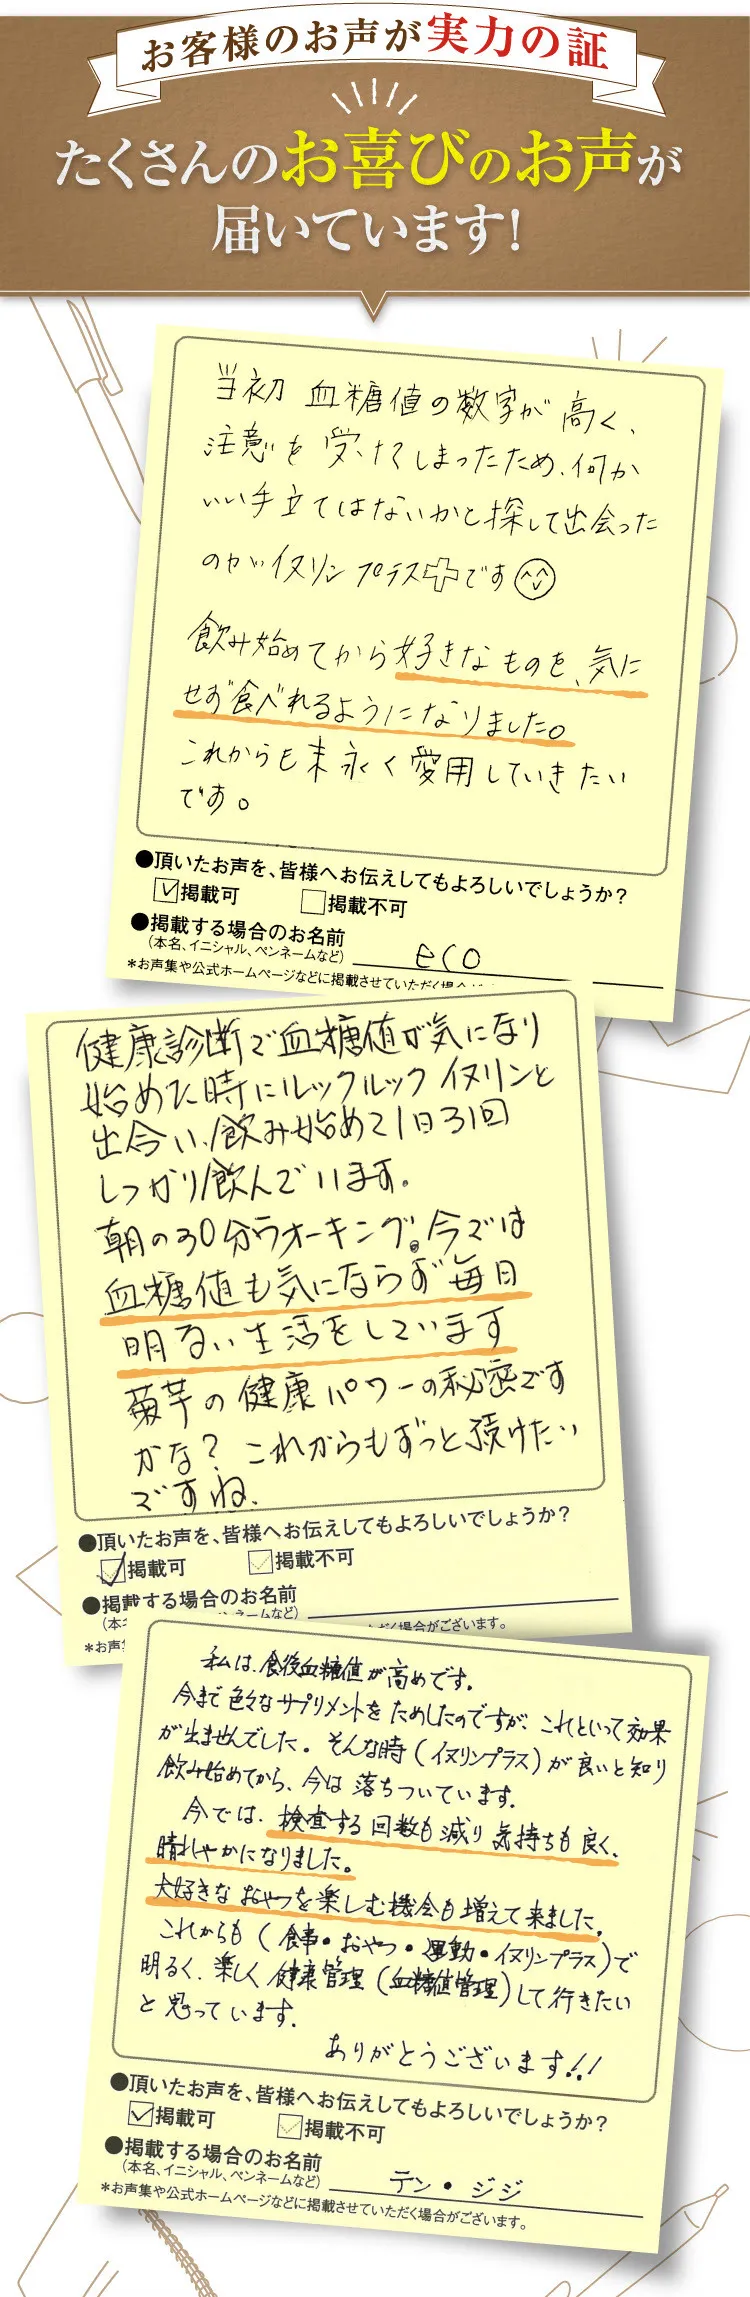 お客様のお声が実力の証
たくさんのお喜びのお声が
届いています!
当初 血糖値の数字が高く、
注意を受けてしまったため、何か
いい手立てはないかと探して出会った
のがイヌリンプラス➕です
飲み始めてから好きなものを、気に
せず食べれるようになりました。
これからも末永く愛用していきたい
です。
●頂いたお声を、皆様へお伝えしてもよろしいでしょうか?
掲載可 掲載不可
●掲載する場合のお名前
(本名、イニシャル、ペンネームなど)
eco
*お声集や公式ホームページなどに掲載させていただく場合が
健康診断で血糖値が気になり
始めた時にルックルックイヌリンと
出合い、飲み始めて1日31回
しっかり飲んでいます。
朝の30分ウオーキング。今では
血糖値も気にならず毎日
明るい生活をしています
菊芋の健康パワーの秘密です
かな? これからもずっと頂けたい
ですね、
●頂いたお声を、皆様へお伝えしてもよろしいでしょうか?
掲載可 掲載不可
●掲載する場合のお名前
ペンネームなど)
*お声
だく場合がございます。
私は、食後血糖値が高めです。
今まで色々なサプリメントをためしたのですが、これといって効果
が出ませんでした。そんな時(イヌリンプラス)が良いと知り
飲み始めてから、今は落ちついています。
今では、検査する回数も減り気持ちも良く、
晴れやかになりました。
大好きなおやつを楽しむ機会も増えて来ました。
これからも(食事・おやつ・運動・イヌリンプラス)で
明るく、楽しく健康管理(血糖値管理)して行きたい
と思っています。
ありがとうございます!!
●頂いたお声を、皆様へお伝えしてもよろしいでしょうか?
掲載可 掲載不可
●掲載する場合のお名前
(本名、イニシャル、ペンネームなど)
テン・ジジ
*お声集や公式ホームページなどに掲載させていただく場合がございます。